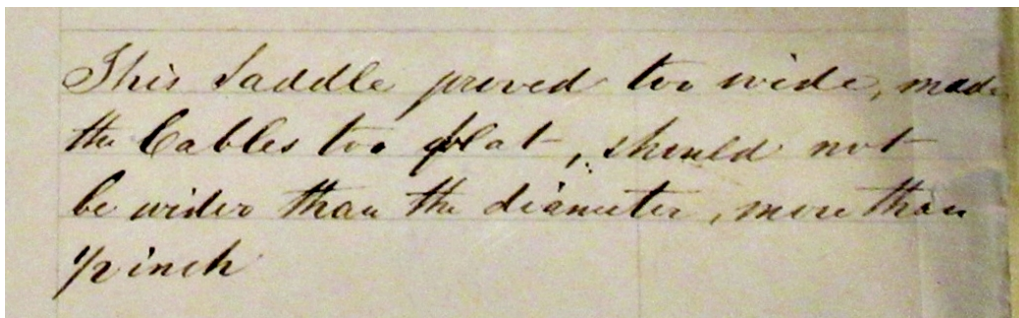 This Saddle proved too wide, made
the Cables too flat, should not
be wider than the diameter, more than
1/2 inch